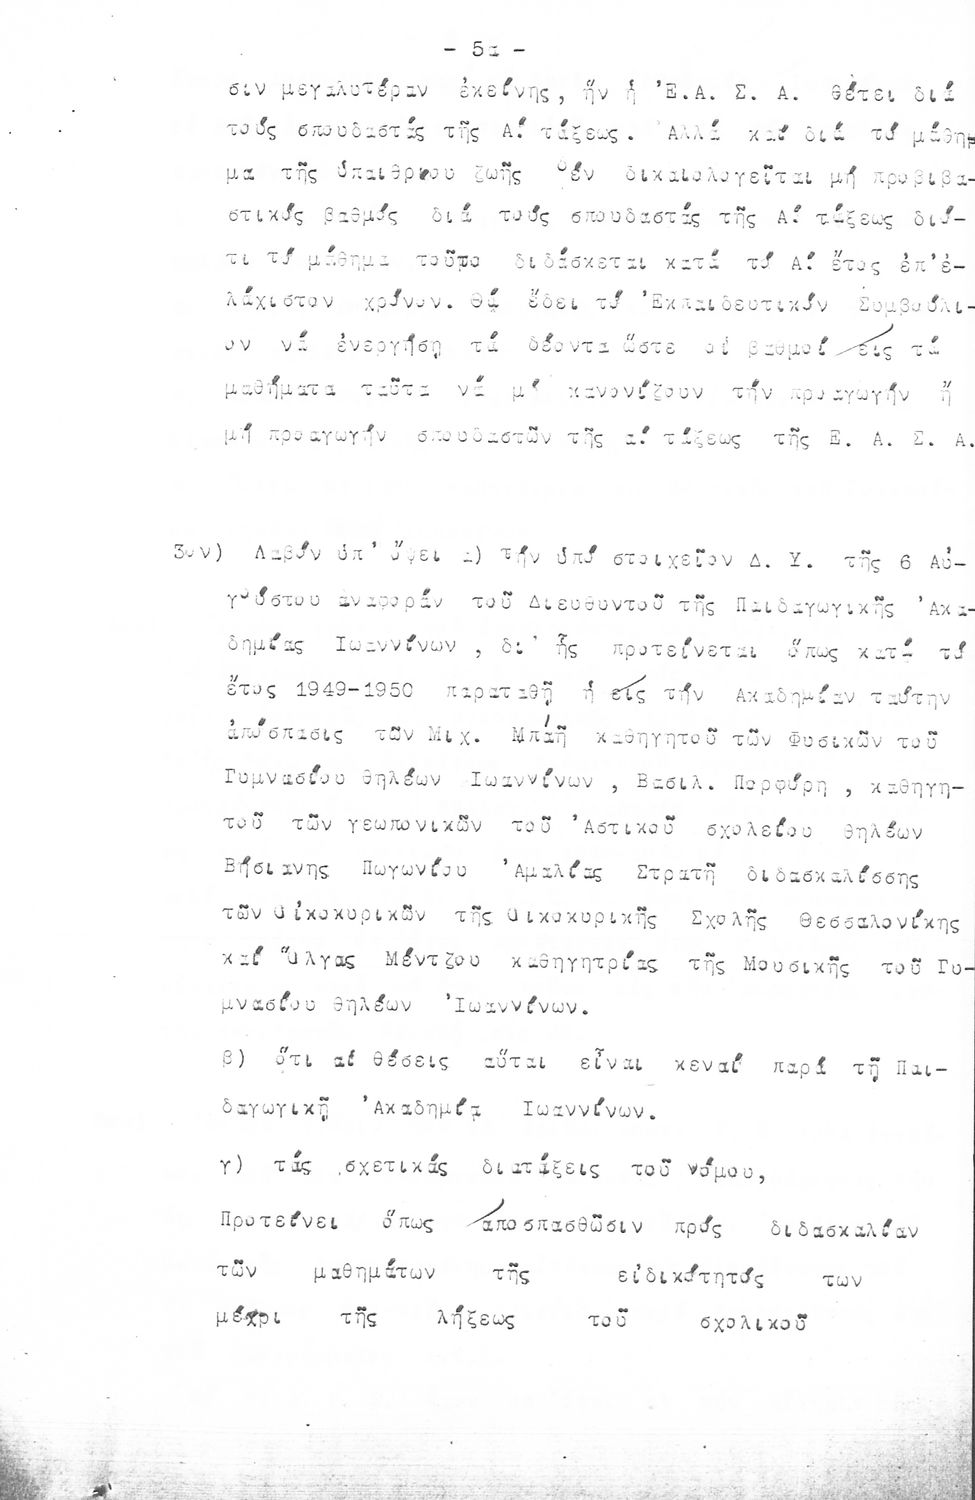 - 5α -
σιν μεγαλυτέραν ἐκείνης, ἥν ἡ Ἐ.Α. Σ. Α. θέτει διά
τούς σπουδαστάς τῆς Α! τάξεως. Ἀλλά καί διά τό μάθημ
μα τῆς ὑπαιθρίου ζωῆς δέν δικαιολογεῖται μή προβιβα-
στικός βαθμός διά τούς σπουδαστάς τῆς Α! τάξεως διό-
τι τό μάθημα τοῦτο διδάσκεται κατά τό Α! ἔτος ἐπ'ἐ-
λάχιστον χρόνον. Θά ἔδει τό Ἐκπαιδευτικόν Συμβούλι-
ον νά ἐνεργήσῃ τά δέοντα ὥστε οἱ βαθμοί εἰς τά
μαθήματα ταῦτα νά μή κανονίζουν τήν προαγωγήν ἤ
μή προαγωγήν σπουδαστῶν τῆς α! τάξεως τῆς Ε. Α. Σ. Α.
3ον) Λαβόν ὑπ' ὄψει α) τήν ὑπό στοιχεῖον Δ. Υ. τῆς 6 Αὐ-
γούστου ἀναφοράν τοῦ Διευθυντοῦ τῆς Παιδαγωγικῆς Ἀκα-
δημίας Ιωαννίνων , δι' ἧς προτείνεται ὅπως κατά τό
ἔτος 1949-1950 παραταθῇ ἡ εἰς τήν Ακαδημίαν ταύτην
ἀπόσπασις τῶν Μιχ. Μπάῆ καθηγητοῦ τῶν Φυσικῶν τοῦ
Γυμνασίου θηλέων Ιωαννίνων , Βασιλ. Πορφύρη , καθηγη-
τοῦ τῶν γεωπονικῶν τοῦ Ἀστικοῦ σχολείου θηλέων
Βήσιανης Πωγωνίου Ἀμαλίας Στρατῆ διδασκαλίσσης
τῶν οἰκοκυρικῶν τῆς οικοκυρικῆς Σχολῆς Θεσσαλονίκης
καί Ὄλγας Μέντζου καθηγητρίας τῆς Μουσικῆς τοῦ Γυ-
μνασίου θηλέων Ἰωαννίνων.
β) ὅτι αἱ θέσεις αὗται εἶναι κεναί παρά τῇ Παι-
δαγωγικῇ Ἀκαδημίᾳ Ιωαννίνων.
γ) τάς σχετικάς διατάξεις τοῦ νόμου,
Προτείνει ὅπως ἀποσπασθῶσιν πρός διδασκαλίαν
τῶν μαθημάτων τῆς εἰδικότητός των
μέχρι τῆς λήξεως τοῦ σχολικοῦ